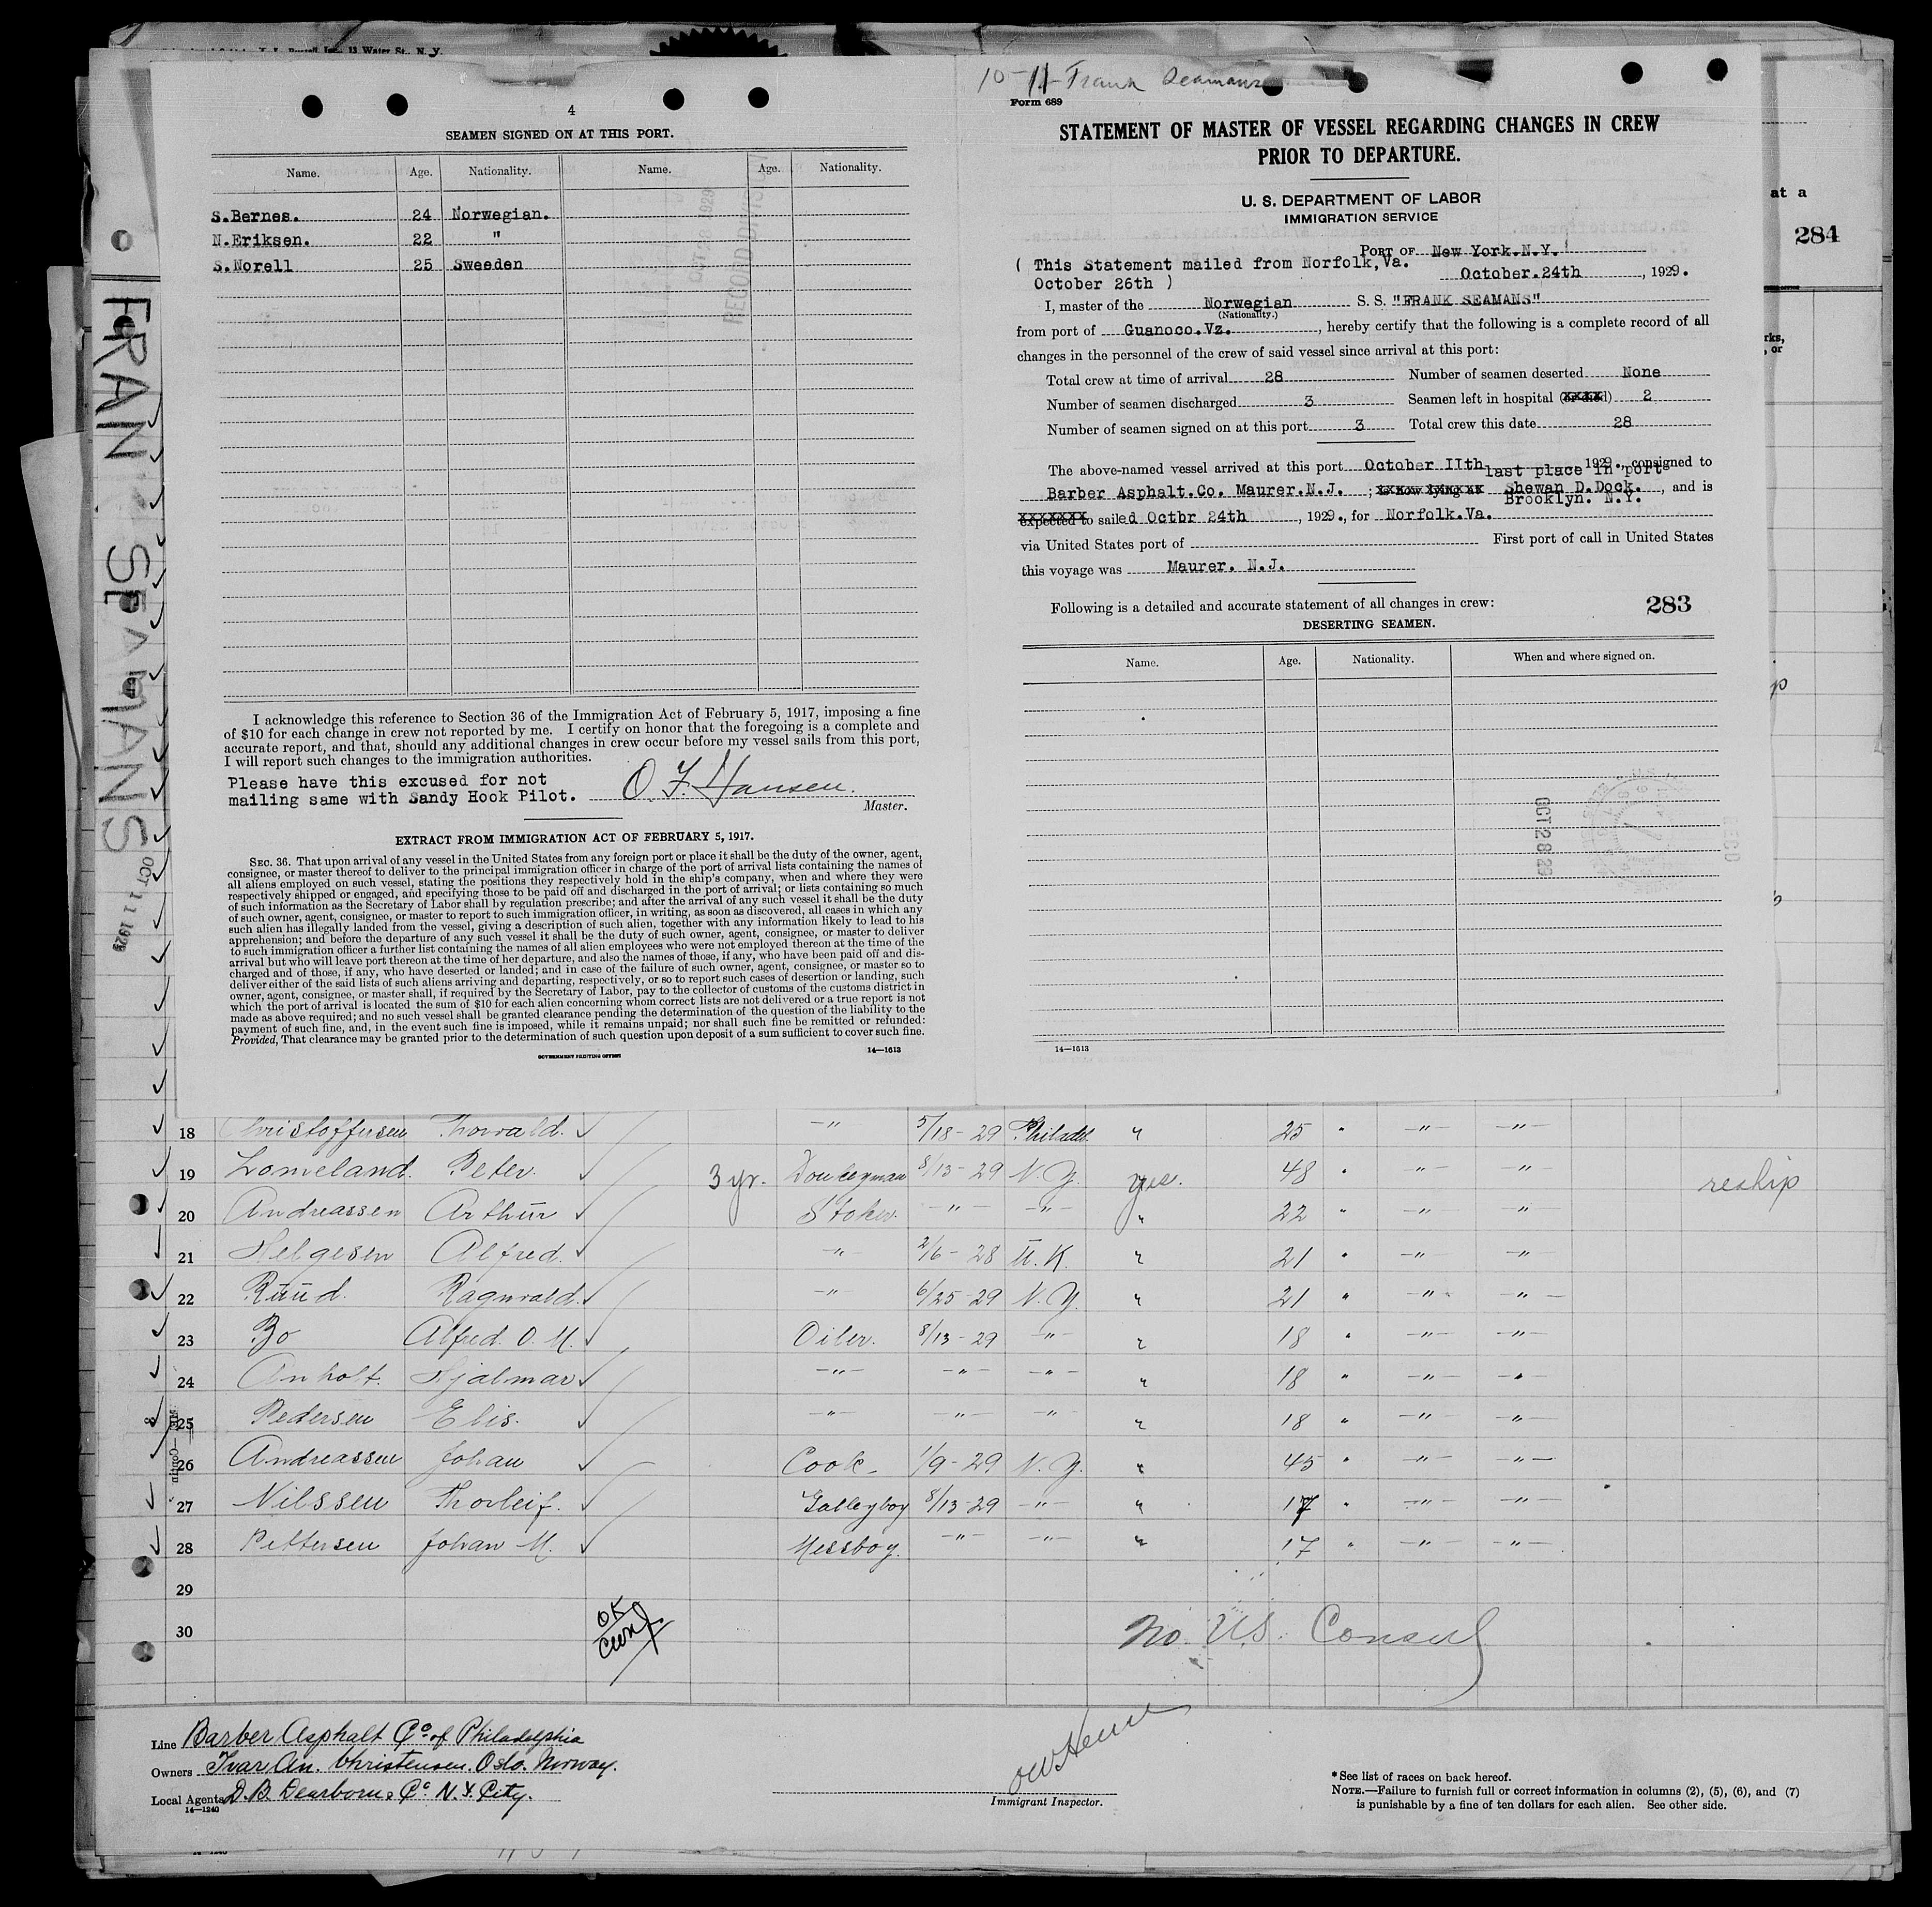 4
SEAMEN SIGNED ON AT THIS PORT.
Name. Age. Nationality. Name. Age. Nationality.
S.Bernes. 24 Norwegian.
N.Eriksen. 22 "
S.Norell 25 Sweeden
I acknowledge this reference to Section 36 of the Immigration Act of February 5, 1917, imposing a fine
of $10 for each change in crew not reported by me. I certify on honor that the foregoing is a complete and
accurate report, and that, should any additional changes in crew occur before my vessel sails from this port,
I will report such changes to the immigration authorities.
Please have this excused for not
mailing same with Sandy Hook Pilot. O. F. Hansen.
Master.
EXTRACT FROM IMMIGRATION ACT OF FEBRUARY 5, 1917.
SEC. 36. That upon arrival of any vessel in the United States from any foreign port or place it shall be the duty of the owner, agent,
consignee, or master thereof to deliver to the principal immigration officer in charge of the port of arrival lists containing the names of
all aliens employed on such vessel, stating the positions they respectively hold in the ship's company, when and where they were
respectively shipped or engaged, and specifying those to be paid off and discharged in the port of arrival; or lists containing so much
of such information as the Secretary of Labor shall by regulation prescribe; and after the arrival of any such vessel it shall be the duty
of such owner, agent, consignee, or master to report to such immigration officer, in writing, as soon as discovered, all cases in which any
such alien has illegally landed from the vessel, giving a description of such alien, together with any information likely to lead to his
apprehension; and before the departure of any such vessel it shall be the duty of such owner, agent, consignee, or master to deliver
to such immigration officer a further list containing the names of all alien employees who were not employed thereon at the time of the
arrival but who will leave port thereon at the time of her departure, and also the names of those, if any, who have been paid off and dis-
charged and of those, if any, who have deserted or landed; and in case of the failure of such owner, agent, consignee, or master so to
deliver either of the said lists of such aliens arriving and departing, respectively, or so to report such cases of desertion or landing, such
owner, agent, consignee, or master shall, if required by the Secretary of Labor, pay to the collector of customs of the customs district in
which the port of arrival is located the sum of $10 for each alien concerning whom correct lists are not delivered or a true report is not
made as above required; and no such vessel shall be granted clearance pending the determination of the question of the liability to the
payment of such fine, and, in the event such fine is imposed, while it remains unpaid; nor shall such fine be remitted or refunded:
Provided, That clearance may be granted prior to the determination of such question upon deposit of a sum sufficient to cover such fine.
GOVERNMENT PRINTING OFFICE 14—1613
10-11- Frank Seamans
Form 689
STATEMENT OF MASTER OF VESSEL REGARDING CHANGES IN CREW
PRIOR TO DEPARTURE.
U. S. DEPARTMENT OF LABOR
IMMIGRATION SERVICE
PORT OF New York.N.Y.
( This Statement mailed from Norfolk,Va. October.24th, 1929.
October 26th )
I, master of the Norwegian S. S. "FRANK SEAMANS"
(Nationality.)
from port of Guanoco.Vz., hereby certify that the following is a complete record of all
changes in the personnel of the crew of said vessel since arrival at this port:
Total crew at time of arrival 28 Number of seamen deserted None
Number of seamen discharged 3 Seamen left in hospital (or died) 2
Number of seamen signed on at this port 3 Total crew this date 28
The above-named vessel arrived at this port October IIth 1929., consigned to
last place in port
Barber Asphalt.Co. Maurer.N.J. ; is now lying at Shewan D.Dock., and is
Brooklyn. N.Y.
expected to sailed Octbr 24th, 1929., for Norfolk.Va.
via United States port of First port of call in United States
this voyage was Maurer. N.J.
Following is a detailed and accurate statement of all changes in crew: 283
DESERTING SEAMEN.
Name. Age. Nationality. When and where signed on.
OCT 28 29
14—1613
at a
284
rks,
, or
FRANK SEAMANS
OCT 11 1929
18 Christoffersen Thorvald. -"- 5/18-29 Philadel. " 25 " -"- -"-
19 Lomeland. Peter. 3 yr. Donkeyman 8/13-29 N.Y. yes. 48 " -"- -"- reship
20 Andreassen Arthur Stoker. -"- -"- " 22 " -"- -"-
21 Helgesen Alfred. -"- 2/6-28 U.K. " 21 " -"- -"-
22 Ruud. Ragnvald. -"- 6/25-29 N.Y. " 21 " -"- -"-
23 Bo Alfred. O. M. Oiler. 8/13-29 -"- " 18 " -"- -"-
24 Anholt. Hjalmar -"- -"- -"- " 18 " -"- -"-
25 Pedersen Elis. -"- -"- -"- " 18 " -"- -"-
26 Andreassen Johan Cook- 1/9-29 N.Y. " 45 " -"- -"-
27 Nilssen Thorleif. Galleyboy 8/13-29 -"- " 17 " -"- -"-
28 Pettersen Johan M. Messboy. -"- -"- " 17 " -"- -"-
29
30
OK
No. U.S. Consul
Line Barber Asphalt Co. of Philadelphia
Owners Ivar An. Christensen. Oslo. Norway.
Local Agents D. B. Dearborn & Co. N.Y. City.
14—1240
Immigrant Inspector.
*See list of races on back hereof.
NOTE.—Failure to furnish full or correct information in columns (2), (5), (6), and (7)
is punishable by a fine of ten dollars for each alien. See other side.